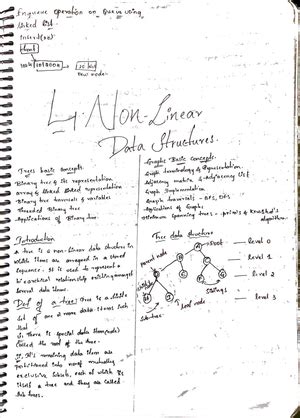 Enqueue operation on Queue using
linked list.
insert(10)
front
10 NULL
new node
4. Non-Linear
Data Structures.
Trees basic concepts.
Binary tree & its representation
array & linked linked representation
Binary tree traversals & variables
Threaded Binary tree
Applications of Binary tree.
Graphs Basic Concepts.
Graph terminology & Representation.
Adjacency matrix & Adjacency List
Graph Implementation
Graph traversals - BFS, DFS
Applications of Graphs
Minimum spanning trees - prim's & kruskal's
algorithm
Introduction
A tree is a non-linear data structure in
which items are arranged in a sorted
sequence. It is used to represent a
hierarchical relationship existing amongst
several data items.
Def of a tree: Tree is a finite
set of one & more data items such
that
i. There is special data item(node)
called the root of the tree.
ii. It's remaining data items are
partitioned into no of mutually
exclusive subsets, each of which is
itself a tree and they are called
sub trees.
Tree data structure
Root
level 0
parent node
level 1
level 2
siblings
leaf node
level 3
sub-tree